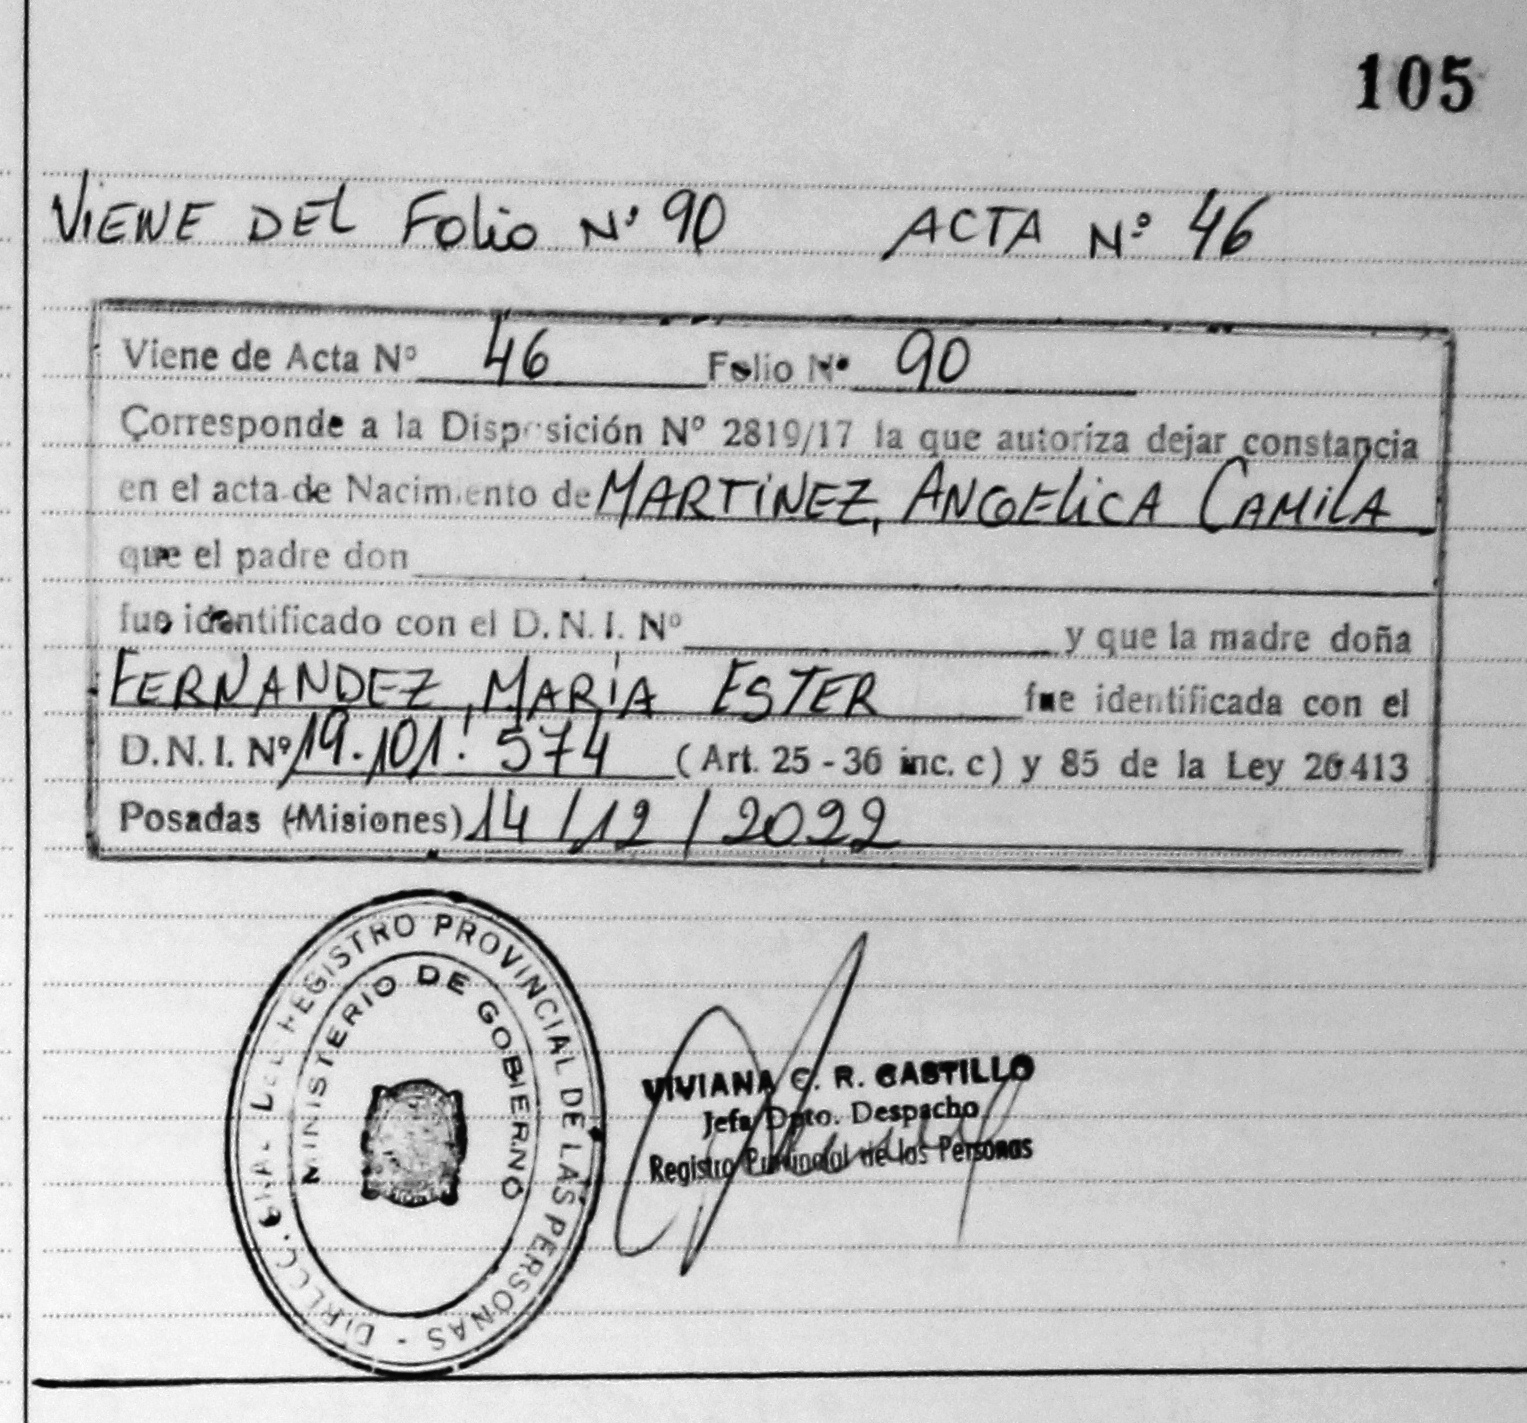 105
VIENE DEL FOLIO Nº 90 ACTA Nº 46
Viene de Acta Nº 46 Folio Nº 90
Corresponde a la Disposición Nº 2819/17 la que autoriza dejar constancia
en el acta de Nacimiento de MARTINEZ, ANGELICA CAMILA
que el padre don
fue identificado con el D. N. I. Nº y que la madre doña
FERNANDEZ, MARÍA ESTER fue identificada con el
D. N. I. Nº 19.101.574 (Art. 25 - 36 inc. c) y 85 de la Ley 26413
Posadas (Misiones) 14/12/2022
DIRECC. GRAL DEL REGISTRO PROVINCIAL DE LAS PERSONAS -
MINISTERIO DE GOBIERNO
VIVIANA C. R. CASTILLO
Jefa Dpto. Despacho
Registro Provincial de las Personas